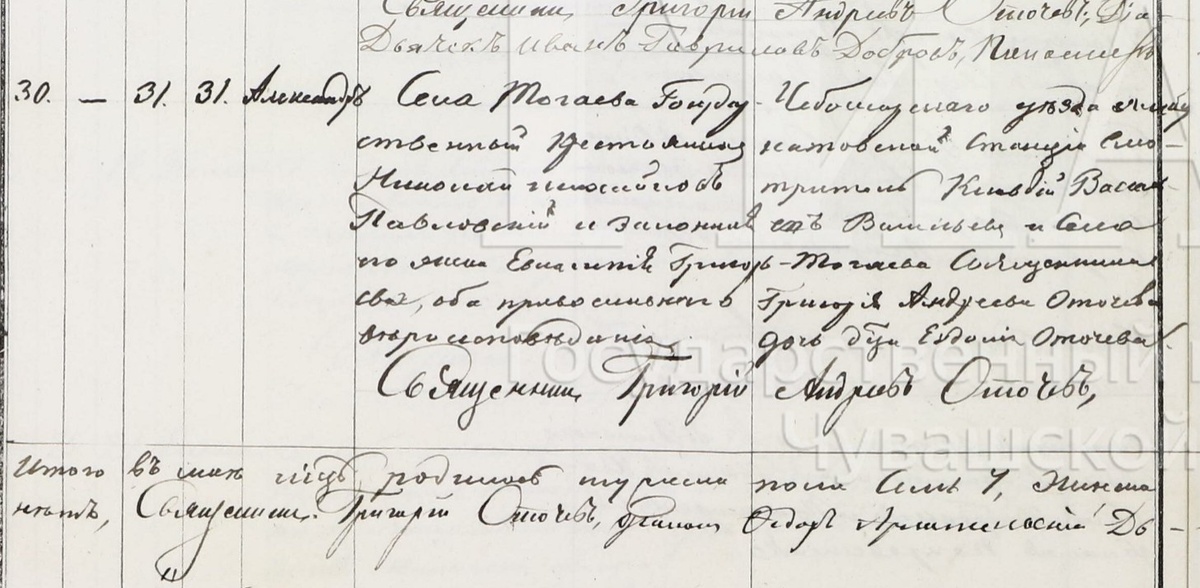 Священникъ Григорій Андреевъ Оточевъ, Діа-
Дьячекъ Иванъ Гавриловъ Добровъ, Пономарь
30. — 31. 31. Александръ
Села Тогаева Государ-
ственный крестьянинъ
Николай Михайловъ
Павловскій и законная
его жена Григорь-
ева, оба православнаго
вѣроисповѣданія
Чебоксарскаго уѣзда
катовской Станціи Смо-
тритель Василь-
евъ Васильевъ и Села
Тогаева Священника
Григорія Андреева Оточева
дочь дѣва Евдокія Оточева.
Священникъ Григорій Андреевъ Оточевъ,
Итого въ маѣ мцѣ родилось мужеска пола Семь 7, Женска
нѣтъ, Священникъ Григорій Оточевъ, Діаконъ Ѳедоръ Дь-
Государственный
Чувашской